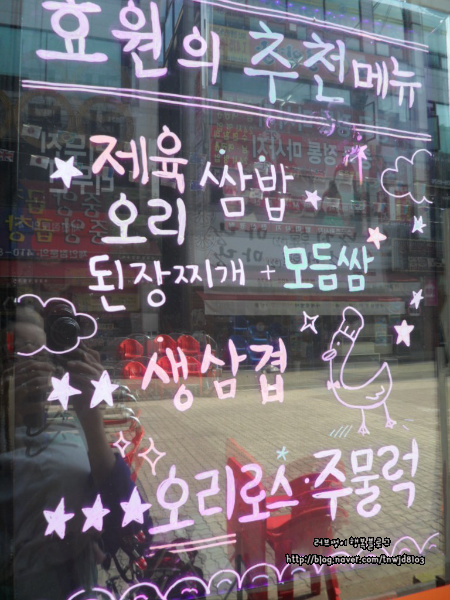 효원의 추천메뉴
제육 쌈밥
오리
된장찌개 + 모듬쌈
생삼겹
오리로스·주물럭
http://blog.naver.com/tnwjd8103